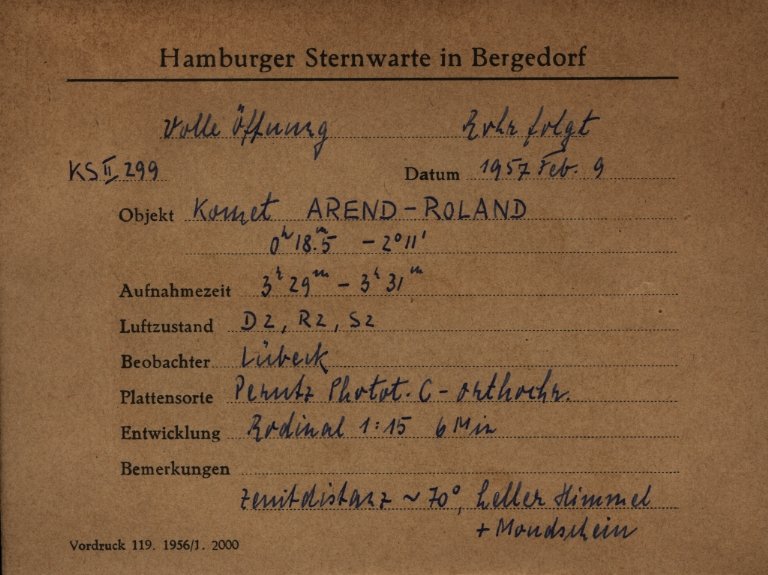 Hamburger Sternwarte in Bergedorf
Volle Öffnung Rohr folgt
KS II 299 Datum 1957 Feb. 9
Objekt Komet AREND-ROLAND
0ʰ 18.ᵐ5 -2°11'
Aufnahmezeit 3ʰ 29ᵐ - 3ʰ 31ᵐ
Luftzustand D2, R2, S2
Beobachter Lübeck
Plattensorte Perutz Photot. C-orthochr.
Entwicklung Rodinal 1:15 6 Min
Bemerkungen
Zenitdistanz ~ 70°, heller Himmel
+ Mondschein
Vordruck 119. 1956/1. 2000